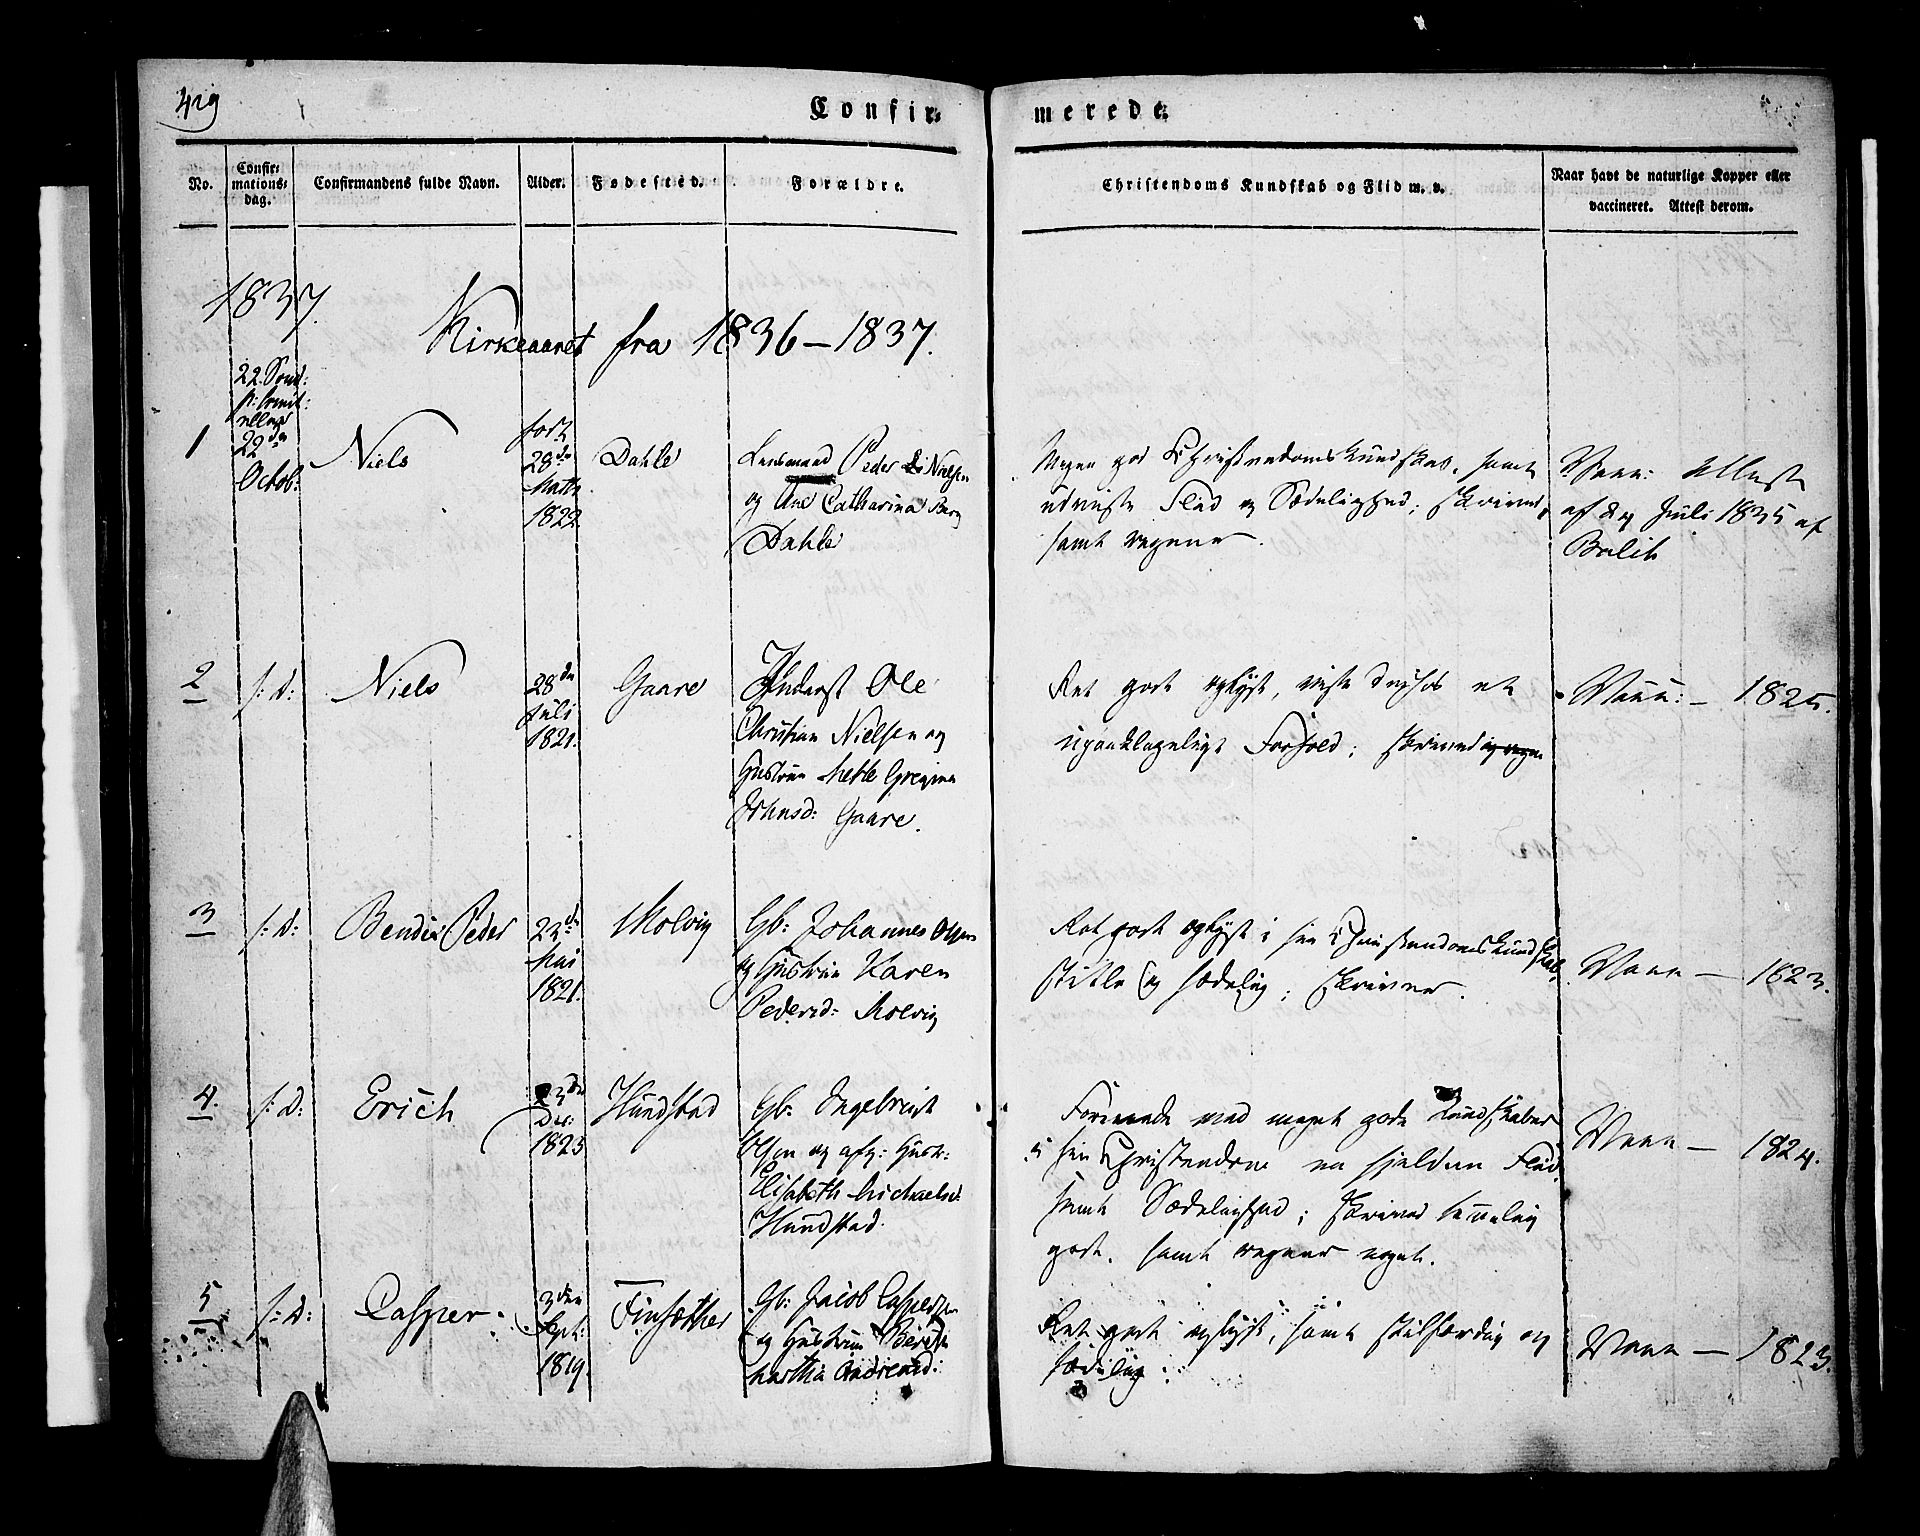 419
Confir=
merede.
No.
Confir=
mations=
dag.
Confirmandens fulde Navn.
Alder.
Fødested.
Forældre.
Christendoms Kundskab og Flid m. v.
Naar havt de naturlige Kopper eller
vaccineret. Attest derom.
1837.
Kirkeaaret fra 1836–1837.
22. Sønd:
p: Trinit:
eller
22de
Octob:
1
Niels
født
28de
Marts
1822
Dahle
Lensmand Peder Nielsen
og Ane Catharina Berg
Dahle
Megen god Christendomskundskab, samt
udviiste Flid og Sædelighed; skriver,
samt regner.
Vacc: Attest
af 24 Juli 1835 af
Balich
2
s: d:
Niels
28de
Juli
1821.
Gaare
Inderst Ole
Christian Nielsen og
Hustrue Mette Gregine
Johnsd: Gaare.
Ret godt oplyst, viiste Driftighed et
upaaklageligt Forhold; skriver og regner
Vacc: – 1825.
3
s: d:
Bendix Peder
23de
Mai
1821.
Molvig
Gb: Johannes Olsen
og Hustrue Karen
Pedersd: Molvig
Ret godt oplyst i sin Christendomskundskab,
stille og sædelig; skriver.
Vacc – 1823.
4.
s: d:
Erich
23de
Dec:
1823
Hundstad
Gb: Ingebrigt
Olsen og afg: Hustr:
Elisabeth Michaelsd:
Hundstad.
Forenede med meget gode Kundskaber
i sin Christendom en sjelden Flid
samt Sædelighed; skriver temmelig
godt, samt regner noget.
Vacc – 1824.
5
s: d:
Casper
3den
Sept:
1819.
Finsæther
Gb: Jacob Caspersen
og Hustrue Berit
Martha Andreasd:
Ret godt oplyst, samt stilfærdig og
sædelig.
Vacc – 1823.